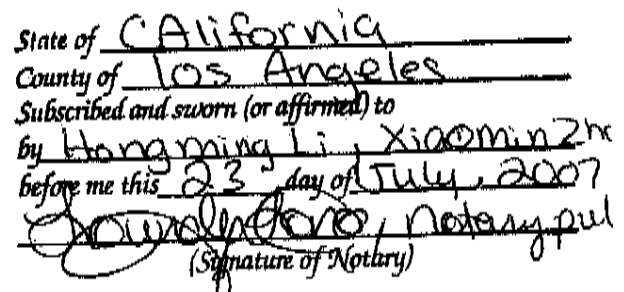 State of CAlifornia
County of los Angeles
Subscribed and sworn (or affirmed) to
by Hongming Li, XiaominZh
before me this 23 day of July, 2007
notary pul
(Signature of Notary)